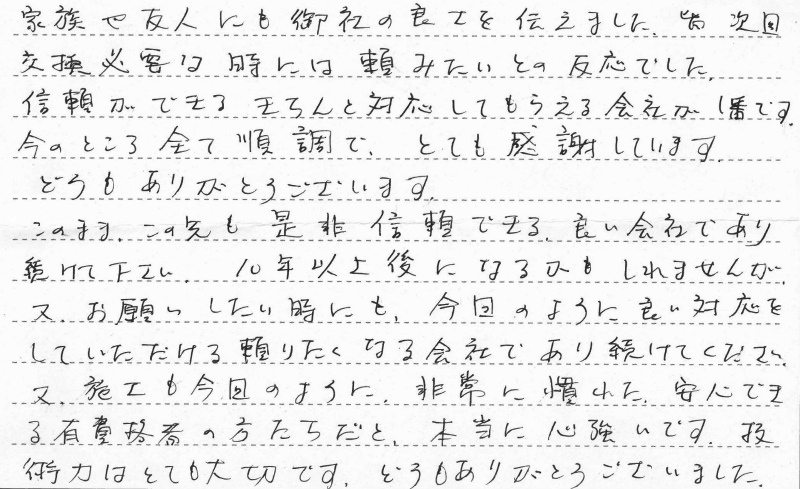 家族や友人にも御社の良さを伝えました。皆 次回
交換必要な時には頼みたいとの反応でした。
信頼ができる きちんと対応してもらえる会社が1番です。
今のところ全て順調で、とても感謝しています。
どうもありがとうございます。
このまま、この先も是非信頼できる、良い会社であり
続けて下さい。10年以上後になるかもしれませんが、
又、お願いしたい時にも、今回のように良い対応を
していただける頼りたくなる会社であり続けてください。
又、施工も今回のように、非常に慣れた、安心でき
る有資格者の方たちだと、本当に心強いです。技
術力はとても大切です。どうもありがとうございました。